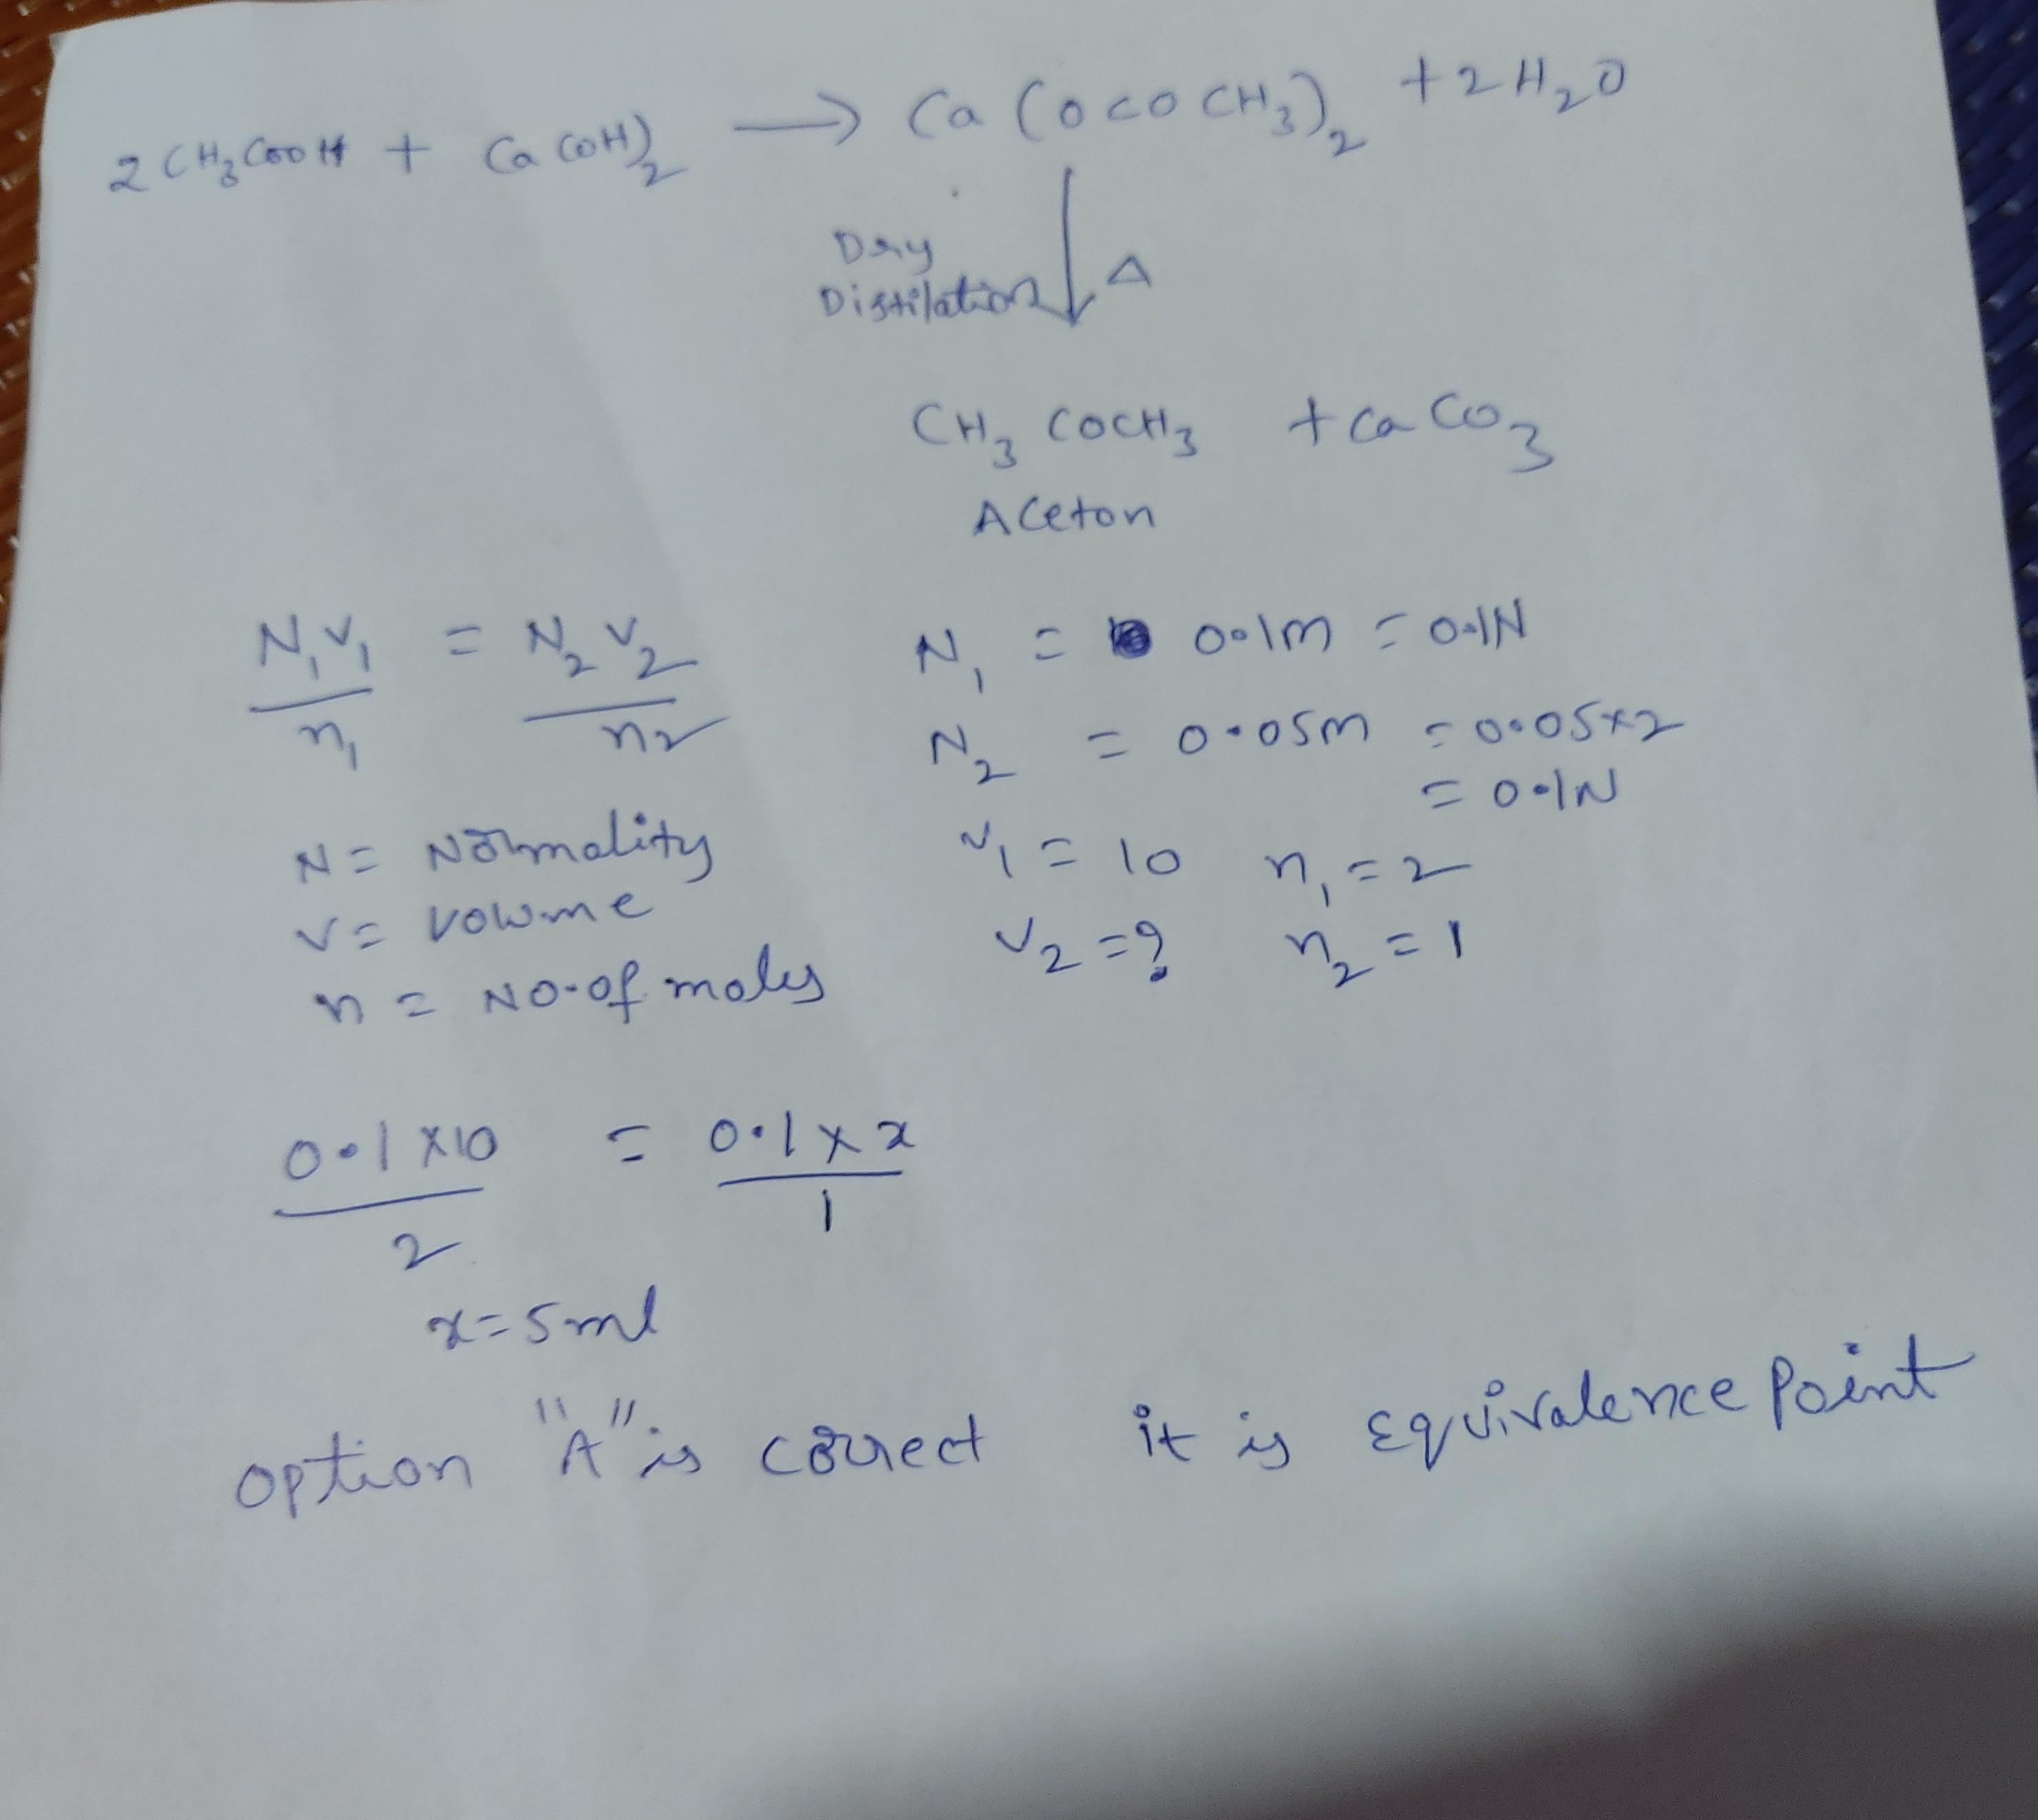 2 CH₃COOH + Ca(OH)₂ → Ca(OCOCH₃)₂ + 2H₂O
Dry
Distilation ↓ Δ
CH₃COCH₃ + CaCO₃
Aceton
N₁V₁/n₁ = N₂V₂/n₂
N = Normality
V = Volume
n = No. of moles
N₁ = 0.1m = 0.1N
N₂ = 0.05m = 0.05×2
= 0.1N
V₁ = 10 n₁ = 2
V₂ = ? n₂ = 1
0.1×10/2 = 0.1×x/1
x = 5ml
option "A" is correct it is Equivalence point